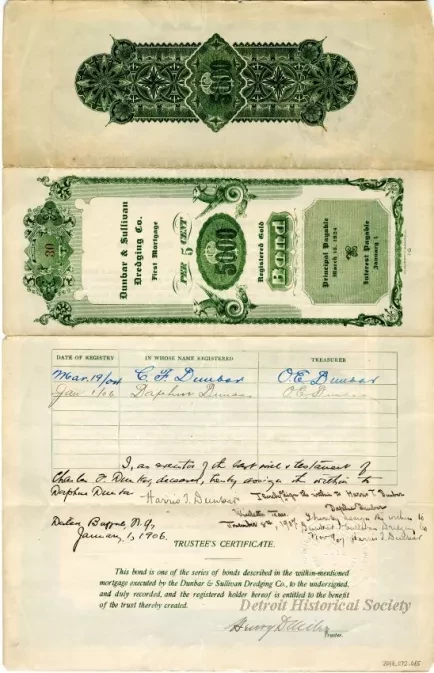 5000
30
Dunbar & Sullivan
Dredging Co.
First Mortgage
5 PER CENT
5000
Registered Gold
Bond
Principal Payable
March 15, 1924
Interest Payable
January 1
DATE OF REGISTRY IN WHOSE NAME REGISTERED TREASURER
Mar. 19/04 C. F. Dunbar O.E. Dunbar
Jan 1/06 Daphne Dunbar O.E. Dunbar
I, as executor of the last will & testament of
Charles F. Dunbar, deceased, hereby assign the within to
Daphne Dunbar Harris T. Dunbar
I hereby assign the within to Harris T. Dunbar
Daphne Dunbar
I hereby assign the within to
Dunbar & Sullivan Dredging Co
Harris T. Dunbar
Dated Buffalo N.Y.
January 1, 1906.
TRUSTEE'S CERTIFICATE.
This bond is one of the series of bonds described in the within-mentioned
mortgage executed by the Dunbar & Sullivan Dredging Co., to the undersigned,
and duly recorded, and the registered holder hereof is entitled to the benefit
of the trust thereby created.
Detroit Historical Society
Trustee.